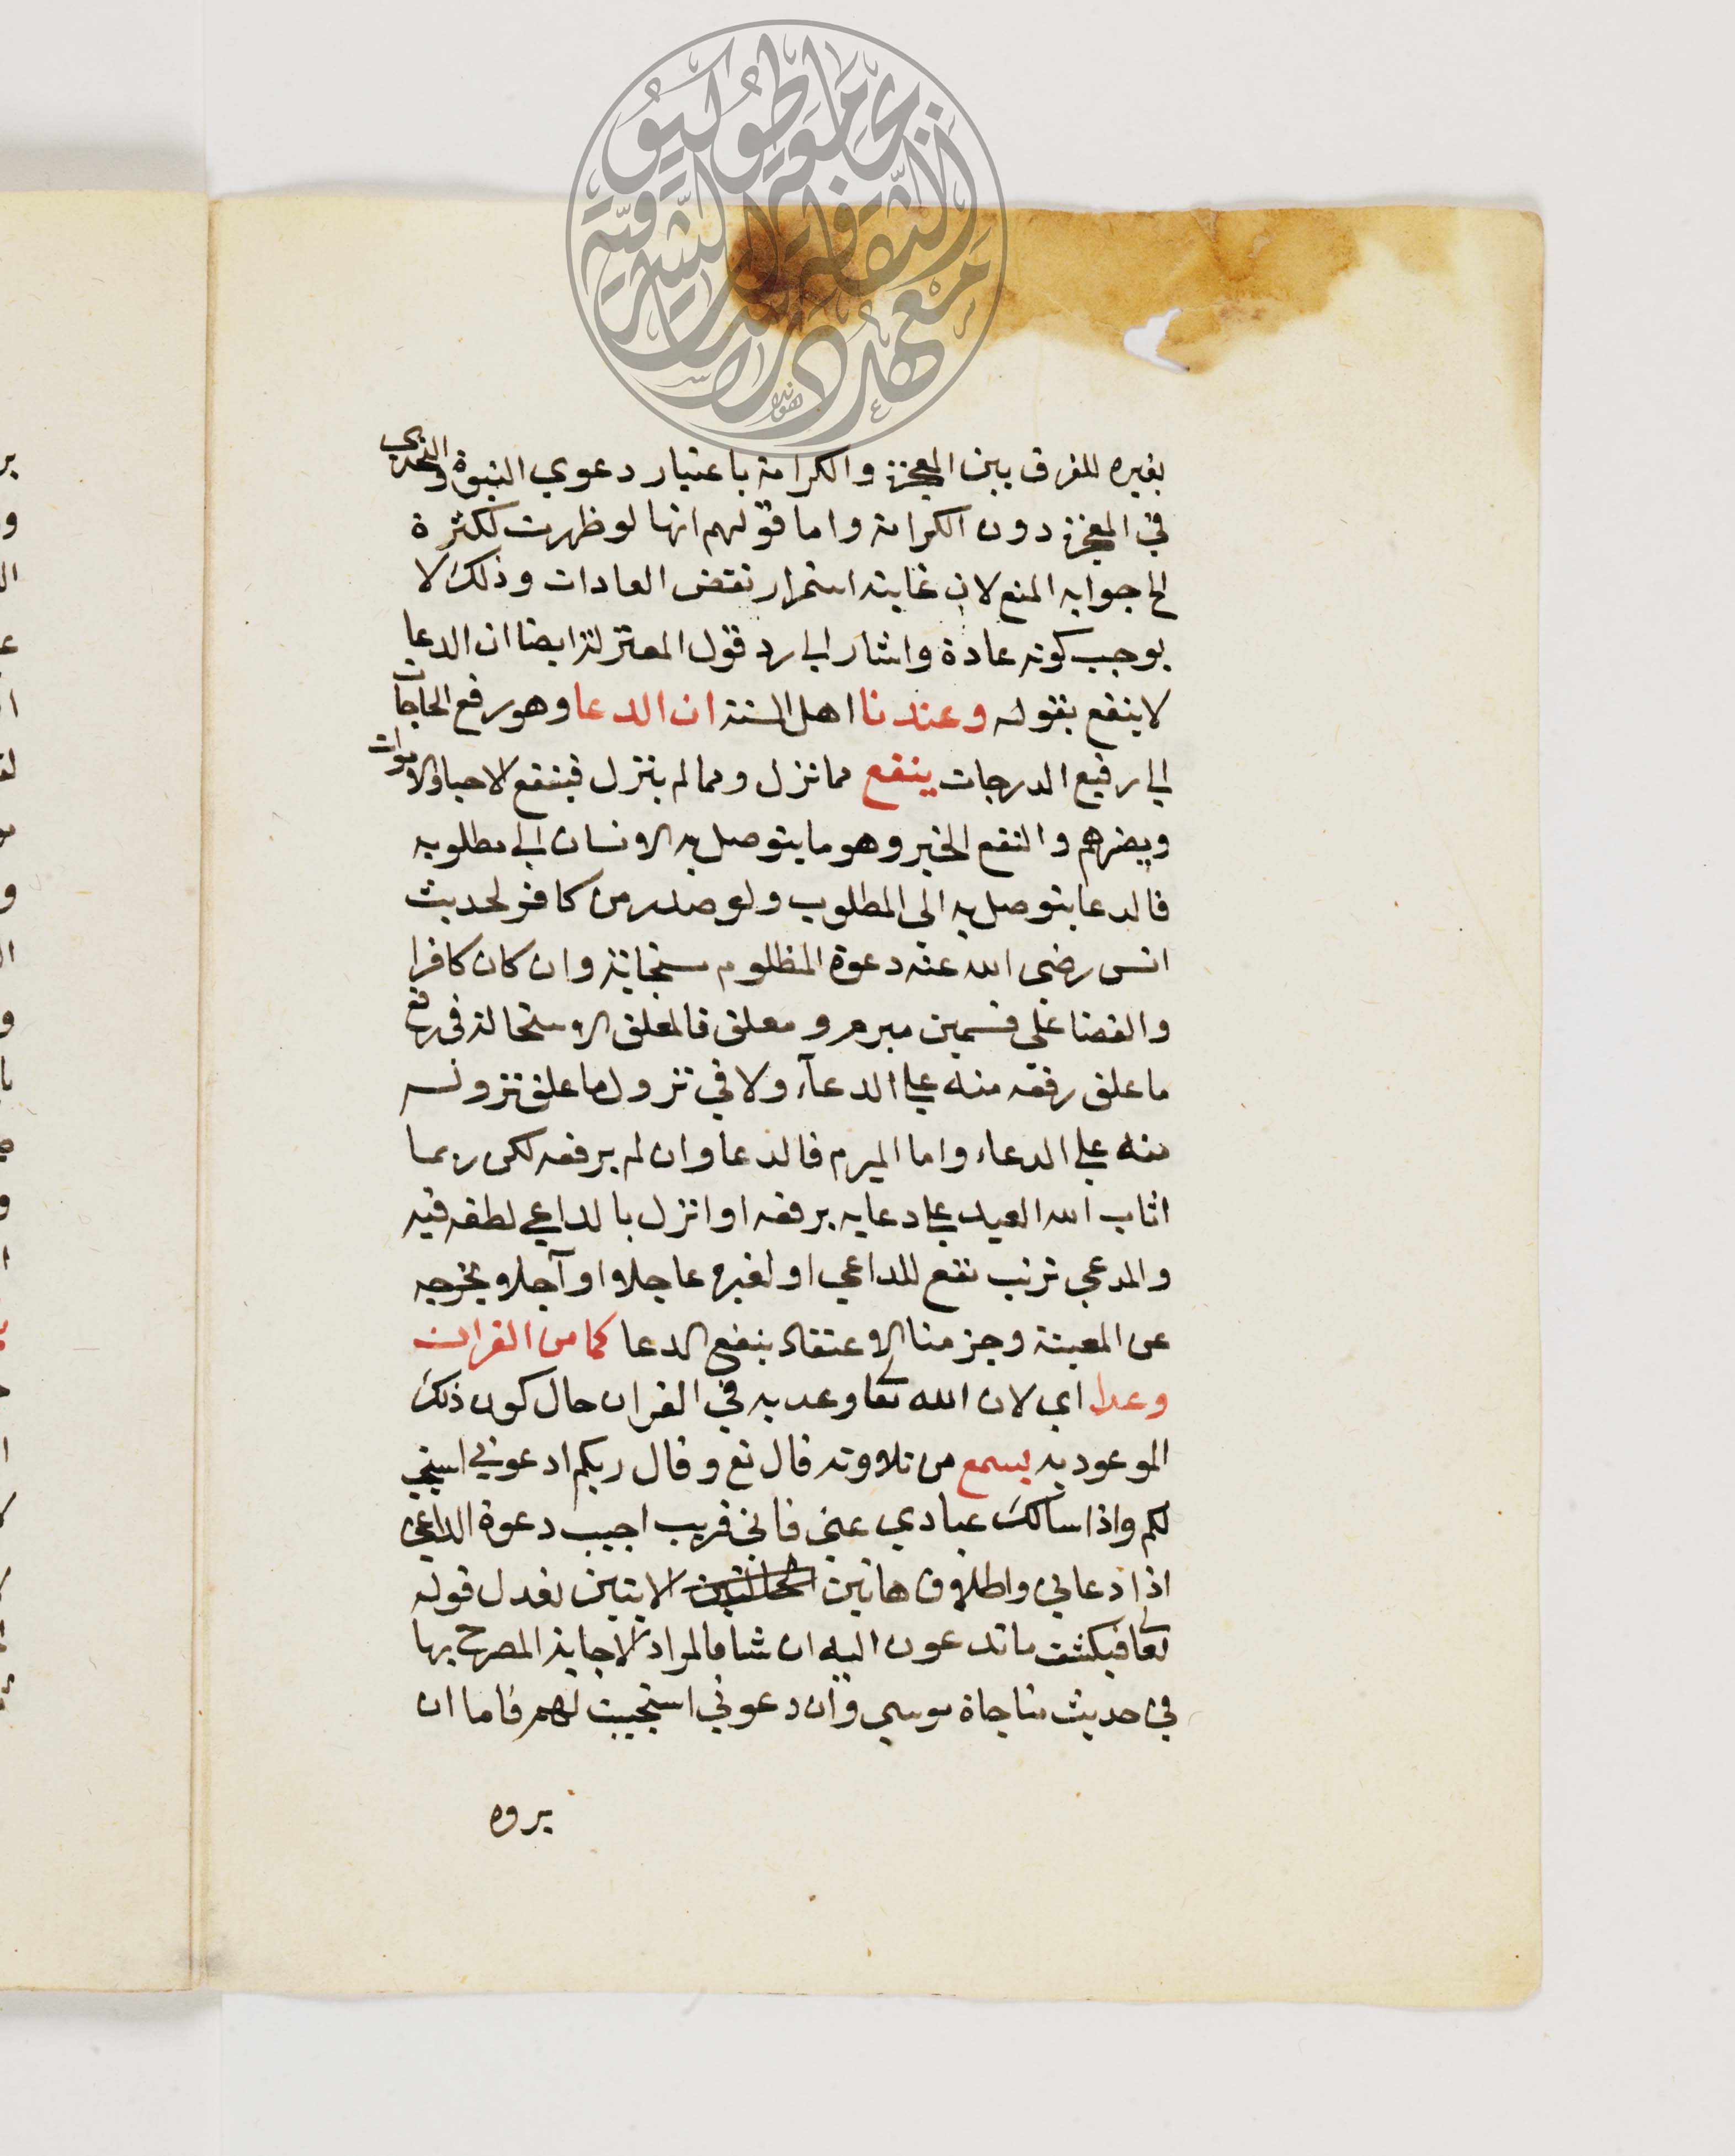 بغيره للفرق بين المعجزة والكرامة باعتبار دعوي النبوة والتحدي
في المعجزة دون الكرامة واما قولهم انها لو ظهرت لكثرة
الخ جوابه المنع لان غايته استمرار نقض العادات وذلك لا
يوجب كونه عادة واشار الي رد قول المعتزلة ايضا ان الدعا
لا ينفع بقوله وعندنا اهل السنة ان الدعا وهو رفع الحاجات
الي رفيع الدرجات ينفع مما نزل ومما لم ينزل فينفع الاحيا والاموات
ويضرهم والنفع الخير وهو ما يتوصل به الانسان الي مطلوبه
فالدعا يتوصل به الى المطلوب ولو صدر من كافر لحديث
انس رضى الله عنه دعوة المظلوم مستجابة وان كان كافرا
والقضا على قسمين مبرم و معلق فالمعلق لا استحالة فى رفع
ما علق رفعه منه علي الدعآء ولا في نزول ما علق نزوله
منه علي الدعاء واما المبرم فالدعا وان لم يرفعه لكن ربما
اثاب الله العبد علي دعايه برفعه او انزل بالداعي لطفه فيه
والمدعي ترتب نفع للداعي او لغيره عاجلا او آجلا يخرجه
عن العبث وجزمنا الاعتقاد بنفع الدعا كما من القران
وعدا اي لان الله تعا وعد به في القران حال كون ذلك
الموعود به يسمع من تلاوته قال تع وقال ربكم ادعوني استجب
لكم واذا سالك عبادي عنى فانى قريب اجيب دعوة الداعي
اذا دعاني واطلاق هاتين الايتين لعدل قوله
تعا فيكشف ما تدعون اليه ان شا فالمراد بالاجابة المصرح بها
في حديث مناجاة موسي وان دعوني استجبت لهم فاما ان
يروه